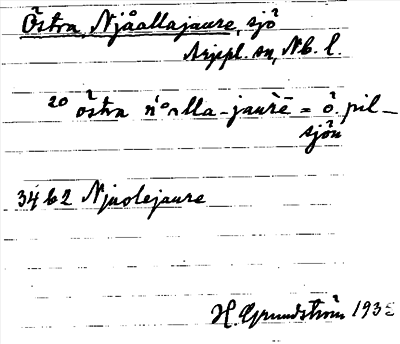 Östra Njåallajaure, sjö
Arjepl. sn, Nb. l.
20 östra ńo̊ʌlla-jaurē = ö. pil-
sjön
34 b2 Njaolejaure
H. Grundström 193